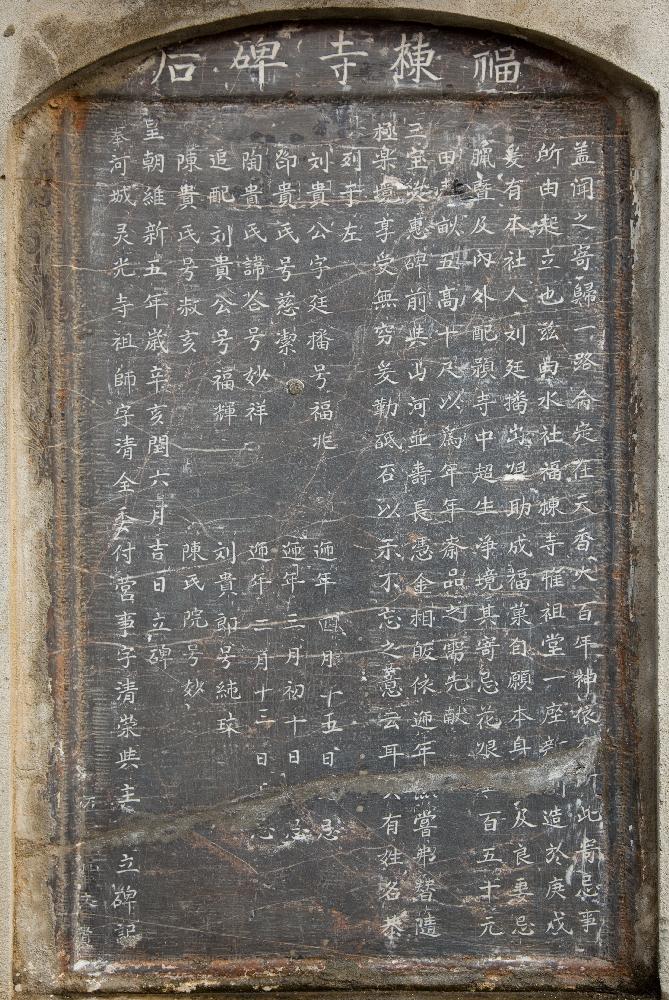 福棟寺碑石
盖聞之寄歸一路俞定在天香火百年神依 此寄忌事
所由起立也兹由水社福棟寺惟祖堂一座 造於庚戌
爰有本社人刘廷播 恳助成福菓自願本身 及良妻忌
臘暨及內外配預寺中超生净境其寄忌花 百五十元
田 畝五高十尺以為年年齋品之需先献
三宝 惠碑前與山河並壽長憑金相皈依 年 嘗弗替隨
極楽境享受無穷爰勒砥石以示不忘之意云耳 有姓名恭
列于左
刘貴公字廷播号福兆 年四月十五日 忌
郃貴氏号慈潔 年三月初十日 忌
陶貴氏諱 号妙祥 年三月十三日 忌
追配刘貴公号福輝 刘貴郎号純
陳貴氏号淑亥 陳氏院号妙
皇朝維新五年歲辛亥閏六月吉日立碑
奉河城灵光寺祖師字清全 付营事字清荣與主 立碑記